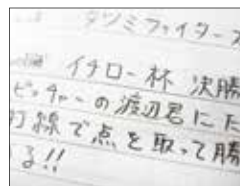 タツミファイターズ
イチロー杯 決勝
ピッチャーの渡辺君にた
打線で点を取って勝
る!!